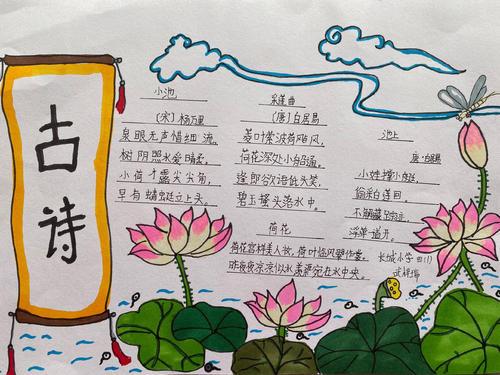 古诗
小池
(宋)杨万里
泉眼无声惜细流,
树阴照水爱晴柔,
小荷才露尖尖角,
早有蜻蜓立上头。
采莲曲
(唐)白居易
菱叶萦波荷飐风,
荷花深处小船通,
逢郎欲语低头笑,
碧玉搔头落水中。
荷花
荷花宫样美人妆,荷叶临风翠作裳,
昨夜夜凉凉似水羡宛在水中央。
池上
唐·白居易
小娃撑小艇,
偷采白莲回,
不解藏踪迹,
浮萍一道开。
长城小学 四(1)